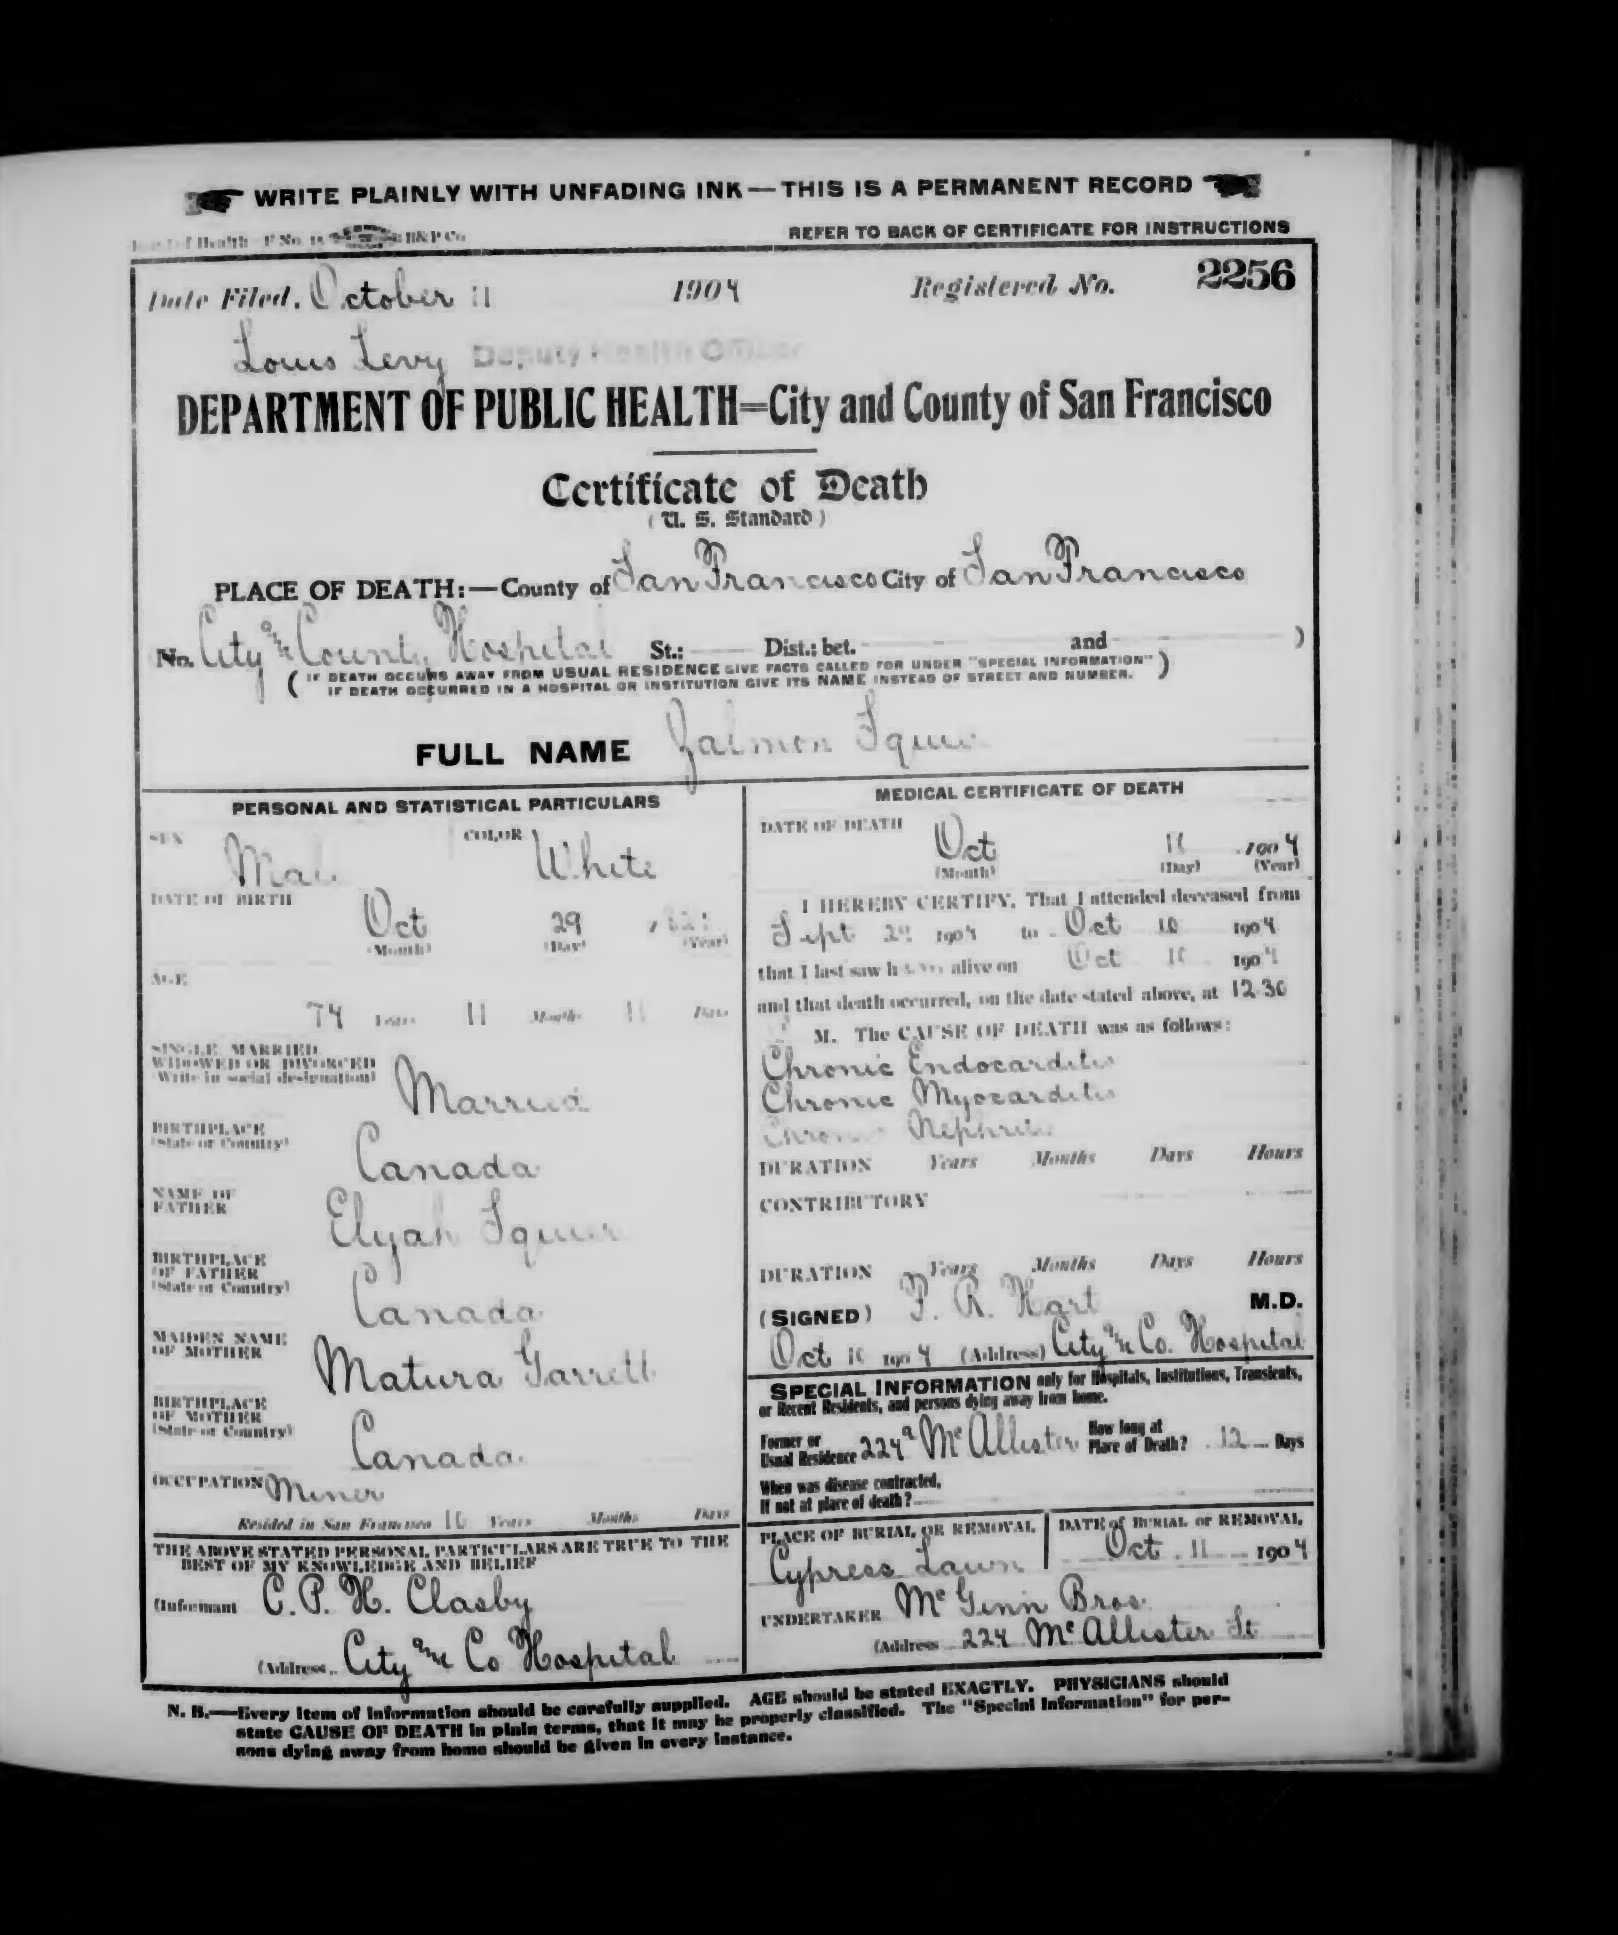 WRITE PLAINLY WITH UNFADING INK — THIS IS A PERMANENT RECORD
of Health H&P Co REFER TO BACK OF CERTIFICATE FOR INSTRUCTIONS
Date Filed, October 11 1904 Registered No. 2256
Louis Levy Deputy Health Officer
DEPARTMENT OF PUBLIC HEALTH=City and County of San Francisco
Certificate of Death
( U. S. Standard )
PLACE OF DEATH:—County of San Francisco City of San Francisco
No. City and County Hospital St.; Dist.; bet. and )
( IF DEATH OCCURS AWAY FROM USUAL RESIDENCE GIVE FACTS CALLED FOR UNDER "SPECIAL INFORMATION" )
IF DEATH OCCURRED IN A HOSPITAL OR INSTITUTION GIVE ITS NAME INSTEAD OF STREET AND NUMBER.
FULL NAME Zalmon Squier
PERSONAL AND STATISTICAL PARTICULARS
SEX Male COLOR White
DATE OF BIRTH
Oct 29
(Month) (Day) (Year)
AGE
74 Years 11 Months 11 Days
SINGLE, MARRIED,
WIDOWED OR DIVORCED
(Write in social designation)
Married
BIRTHPLACE
(State or Country)
Canada
NAME OF
FATHER
Elijah Squier
BIRTHPLACE
OF FATHER
(State or Country)
Canada
MAIDEN NAME
OF MOTHER
Matura Garrett
BIRTHPLACE
OF MOTHER
(State or Country)
Canada
OCCUPATION Miner
Resided in San Francisco 10 Years Months Days
THE ABOVE STATED PERSONAL PARTICULARS ARE TRUE TO THE
BEST OF MY KNOWLEDGE AND BELIEF
(Informant C. P. H. Clasby
(Address City and Co Hospital
MEDICAL CERTIFICATE OF DEATH
DATE OF DEATH
Oct 1904
(Month) (Day) (Year)
I HEREBY CERTIFY, That I attended deceased from
Sept 1904 to Oct 10 1904
that I last saw him alive on Oct 10 1904
and that death occurred, on the date stated above, at 12.30
M. The CAUSE OF DEATH was as follows:
Chronic Endocarditis
Chronic Myocarditis
Chronic Nephritis
DURATION Years Months Days Hours
CONTRIBUTORY
DURATION Years Months Days Hours
(SIGNED) F. R. Hart M.D.
Oct 10 1904 (Address) City and Co. Hospital
SPECIAL INFORMATION only for Hospitals, Institutions, Transients,
or Recent Residents, and persons dying away from home.
Former or
Usual Residence 224a McAllister How long at
Place of Death? 12 Days
When was disease contracted,
If not at place of death?
PLACE OF BURIAL OR REMOVAL
Cypress Lawn
DATE of BURIAL or REMOVAL
Oct 11 1904
UNDERTAKER McGinn Bros.
(Address 224 McAllister St
N. B.—Every item of information should be carefully supplied. AGE should be stated EXACTLY. PHYSICIANS should
state CAUSE OF DEATH in plain terms, that it may be properly classified. The "Special Information" for per-
sons dying away from home should be given in every instance.